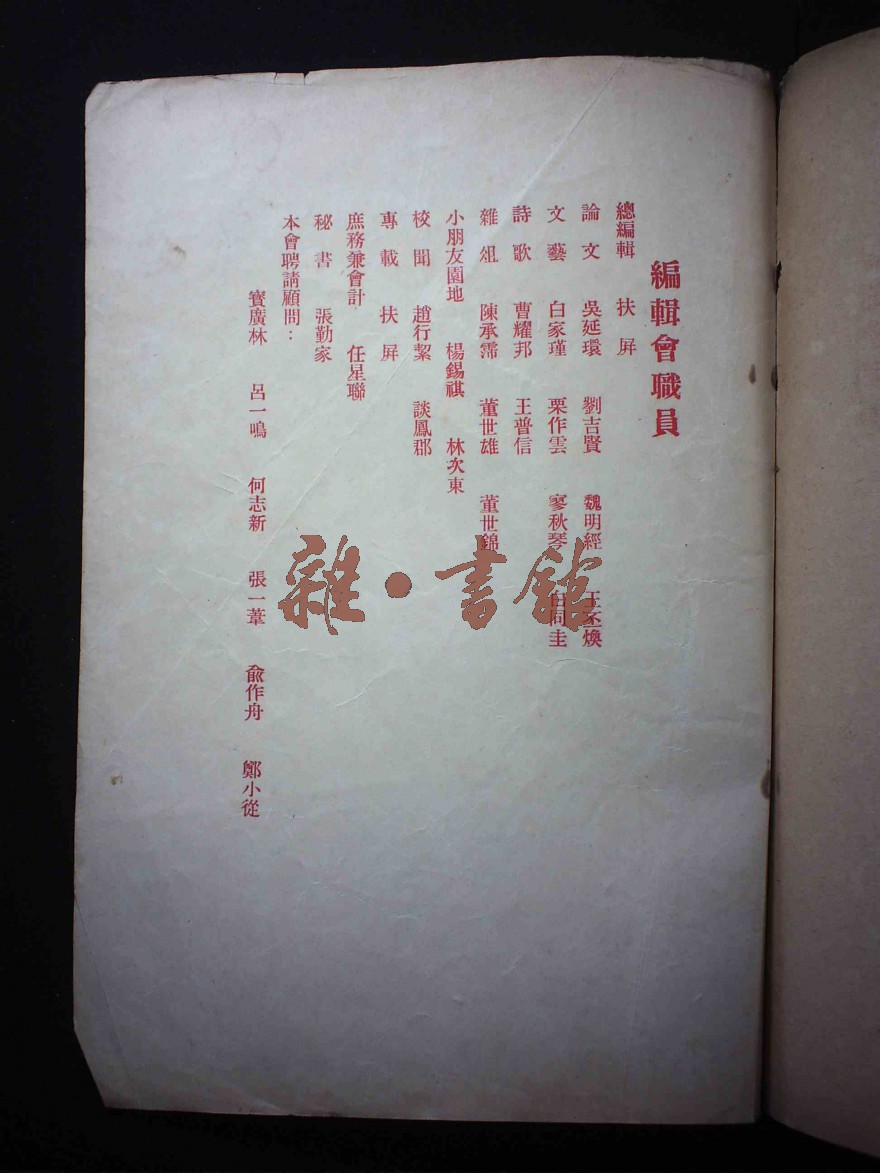 編輯會職員
總編輯 扶屏
論文 吳延環 劉吉賢 魏明經 王丕煥
文藝 白家瑾 栗作雲 寥秋琴 白同圭
詩歌 曹耀邦 王普信
雜俎 陳承霈 董世雄 董世錦
小朋友園地 楊錫祺 林次東
校聞 趙行絜 談鳳郡
專載 扶屏
庶務兼會計 任星聯
秘書 張勤家
本會聘請顧問：
寳廣林 呂一鳴 何志新 張一葦 兪作舟 鄭小從
雜·書館